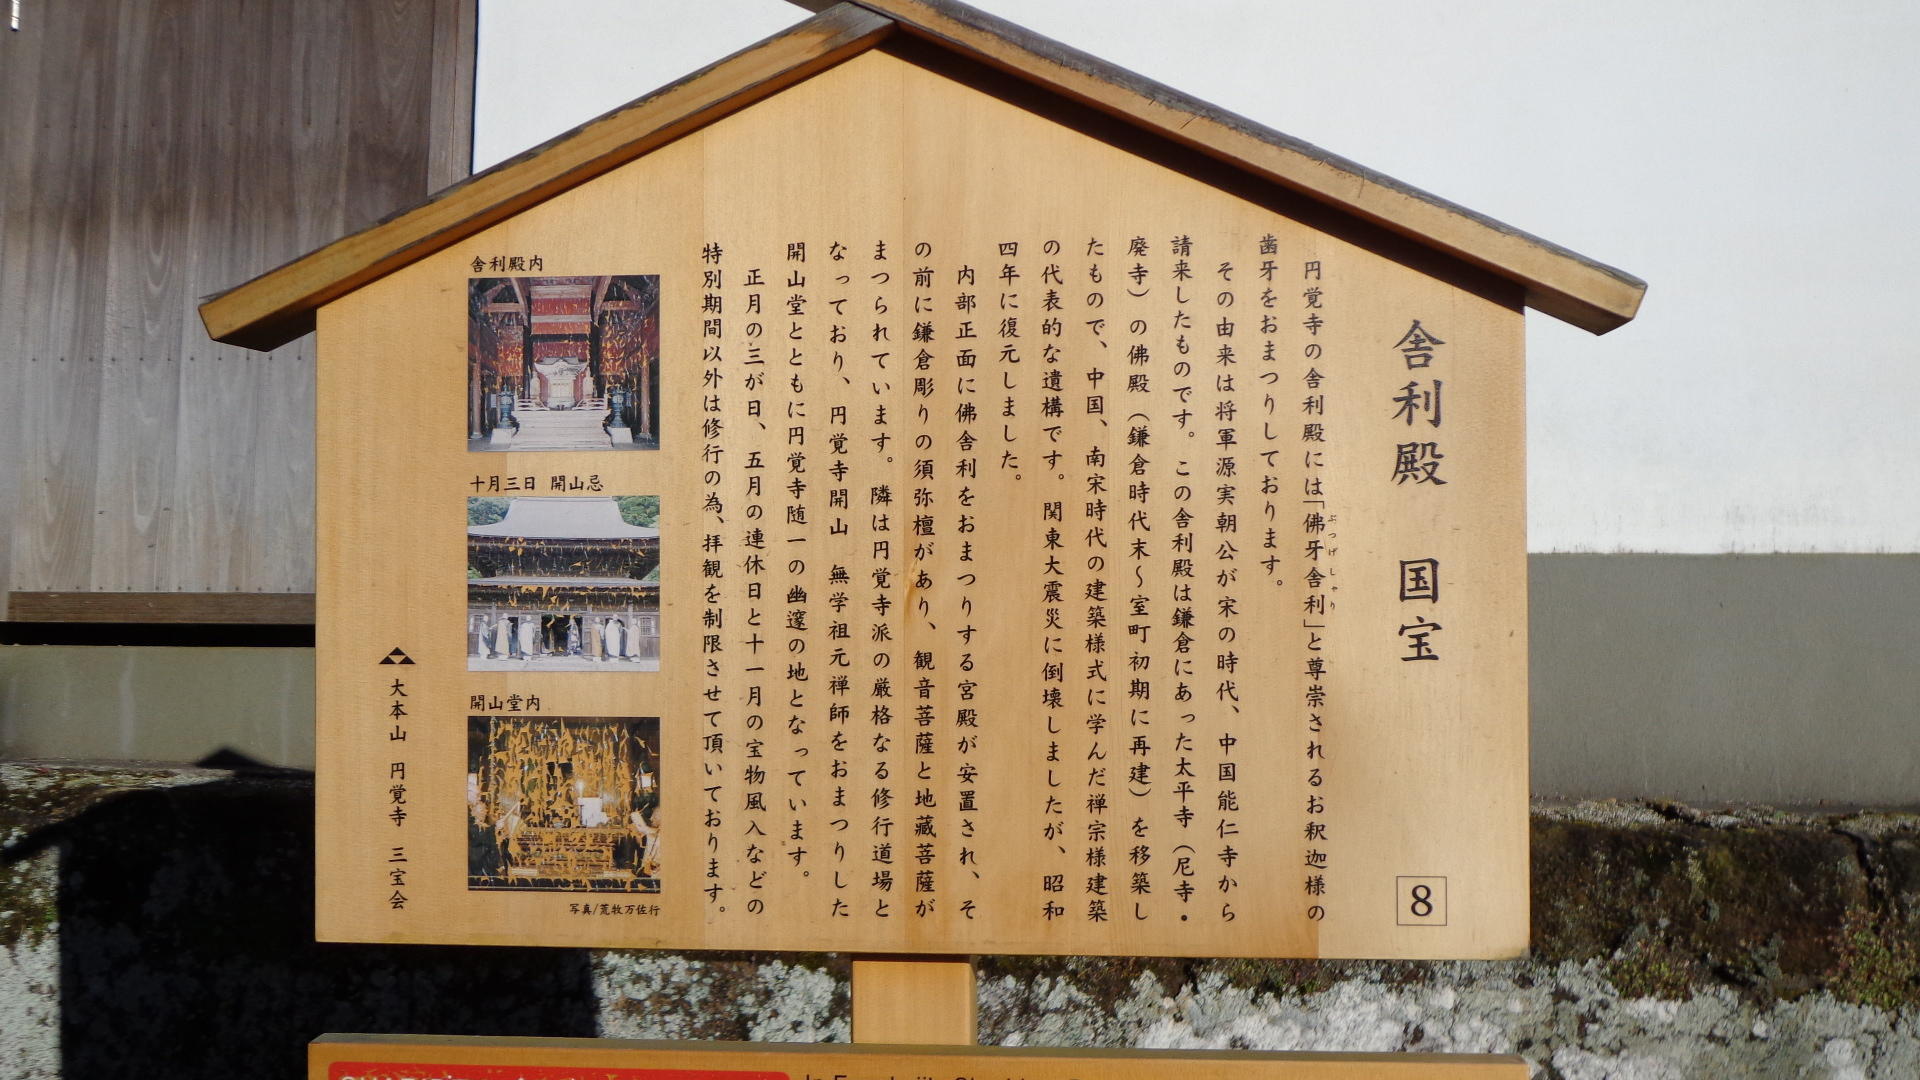 舎利殿 国宝
8
円覚寺の舎利殿には「佛牙舎利」と尊崇されるお釈迦様の
ぶつげしゃり
歯牙をおまつりしております。
その由来は将軍源実朝公が宋の時代、中国能仁寺から
請来したものです。この舎利殿は鎌倉にあった太平寺（尼寺・
廃寺）の佛殿（鎌倉時代末～室町初期に再建）を移築し
たもので、中国、南宋時代の建築様式に学んだ禅宗様建築
の代表的な遺構です。関東大震災に倒壊しましたが、昭和
四年に復元しました。
内部正面に佛舎利をおまつりする宮殿が安置され、そ
の前に鎌倉彫りの須弥檀があり、観音菩薩と地蔵菩薩が
まつられています。隣は円覚寺派の厳格なる修行道場と
なっており、円覚寺開山 無学祖元禅師をおまつりした
開山堂とともに円覚寺随一の幽邃の地となっています。
正月の三が日、五月の連休日と十一月の宝物風入などの
特別期間以外は修行の為、拝観を制限させて頂いております。
舎利殿内
十月三日 開山忌
開山堂内
写真/荒牧万佐行
大本山 円覚寺 三宝会